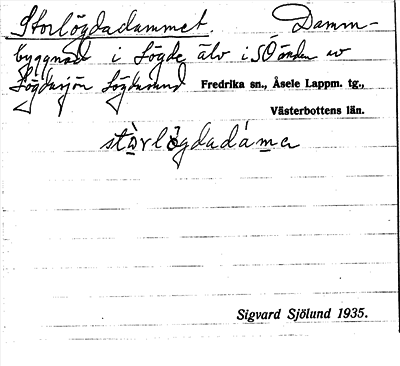 Storlögdadammet. Damm-
byggnad i Lögde älv i SÖ änden av
Lögdasjön Lögdasund Fredrika sn., Åsele Lappm. tg.,
Västerbottens län.
stòrlögdadámen
Sigvard Sjölund 1935.